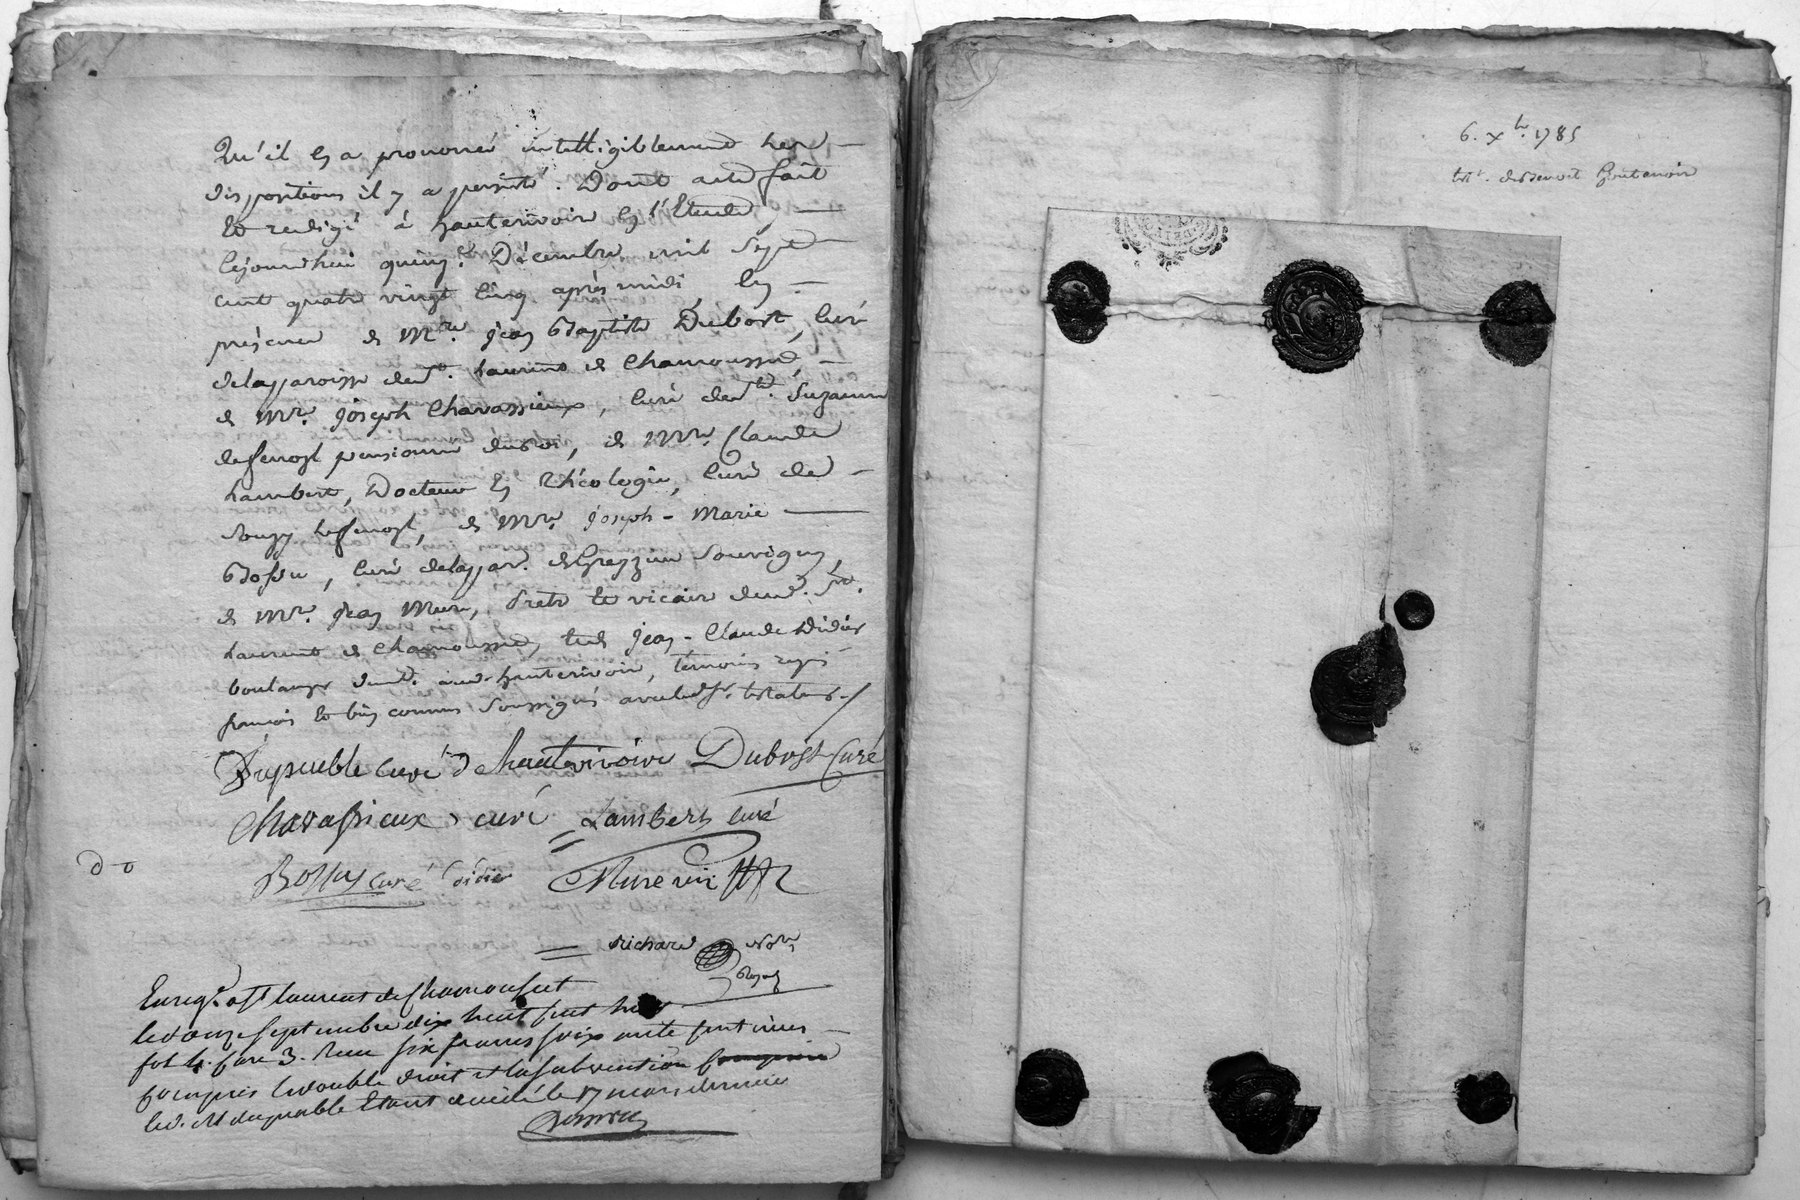 Qu'il en a prononcé intelligiblement ses
dispositions il y a persisté. Dont acte fait
et redigé à hauterivoire en l'Etude
cejourdhui quinze Décembre mil sept
cent quatre vingt cinq après midi en
présence de Mre. jean Baptiste Dubost, curé
delapparoisse de St. Laurent de Chamousset,
de Mre. joseph Chavassieux, curé de Ste. Suzanne
pensionné du roi, de Mre. Claude
Lambert, Docteur en théologie, curé de
de Mre. joseph-Marie
Bossu, curé delappar. de Grezieu Souvigny,
de Mre. jean Mure, Pretre et vicaire dud. St.
Laurent de Chamousset, et de jean-Claude Didier
boulanger demt. aud. hauterivoire, temoins requis
et bien connus soussignés avec led. sr. testateur./.
Dugnieble curé d'hauterivoire Dubost Curé
Chavassieux curé Lambert curé
Bossu curé Didier Mure vic
Do
Richard Nore
Royal
Enregé. a St laurent de Chamousset
le onze septembre dix huit cent
fol 4. case 3. Reçu six francs soixante cent
compris le double droit et la subvention
led. M dugnable Etant decédé le 17 mars dernier
6. Xbre. 1785
testt. de benoit Goutenoir